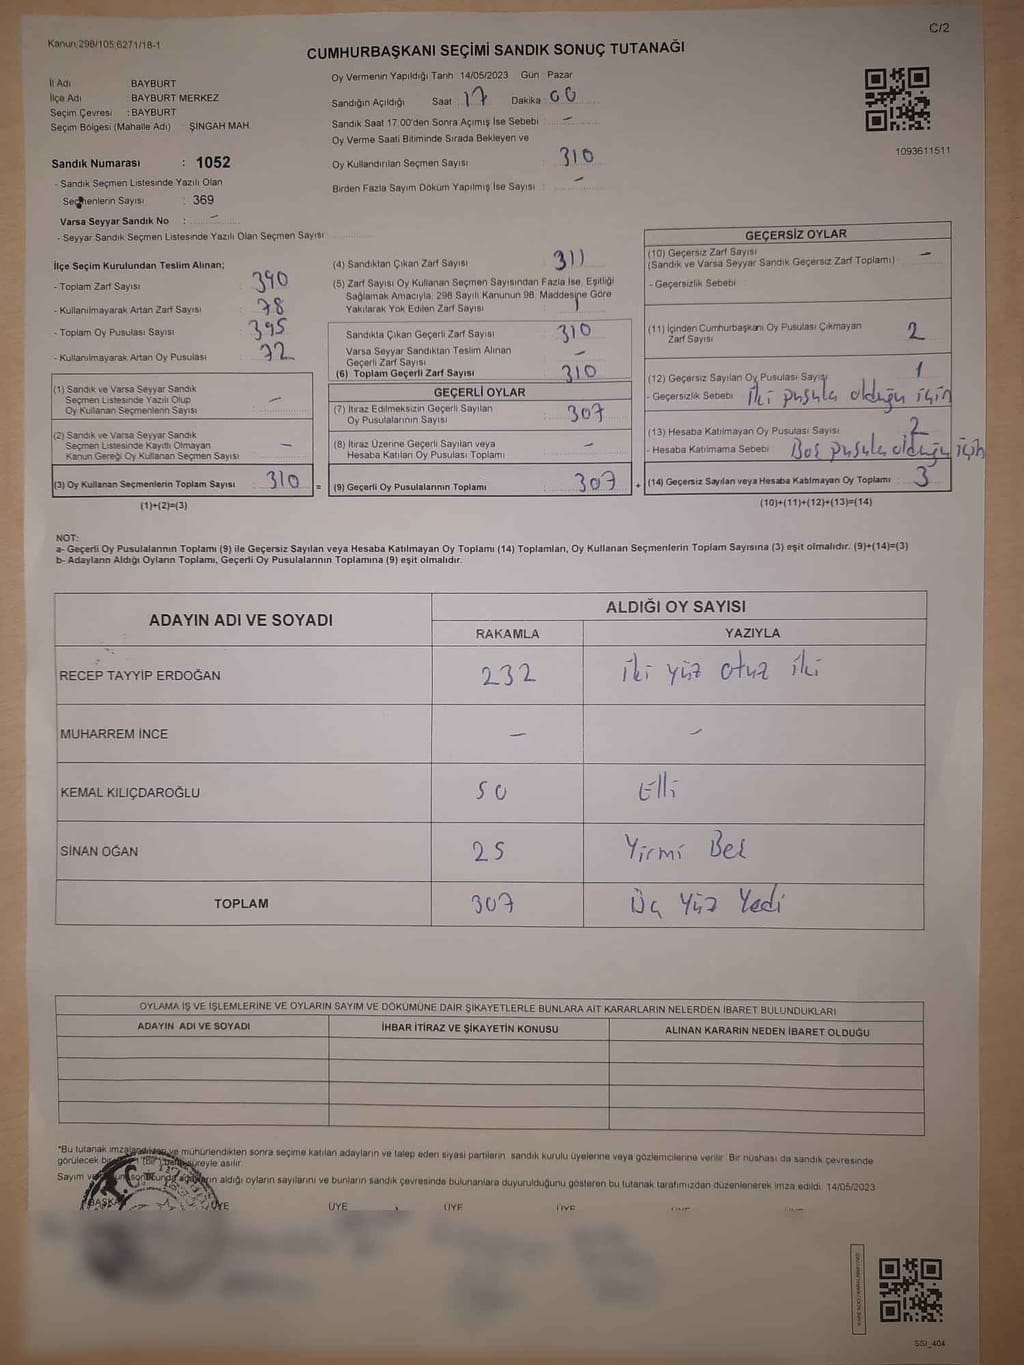 Kanun:298/105;6271/18-1
C/2
CUMHURBAŞKANI SEÇİMİ SANDIK SONUÇ TUTANAĞI
İl Adı BAYBURT
İlçe Adı BAYBURT MERKEZ
Seçim Çevresi : BAYBURT
Seçim Bölgesi (Mahalle Adı) ŞİNGAH MAH.
Sandık Numarası : 1052
- Sandık Seçmen Listesinde Yazılı Olan
Seçmenlerin Sayısı : 369
Varsa Seyyar Sandık No : -
- Seyyar Sandık Seçmen Listesinde Yazılı Olan Seçmen Sayısı
Oy Vermenin Yapıldığı Tarih :14/05/2023 Gün : Pazar
Sandığın Açıldığı Saat : 17 Dakika : 00
Sandık Saat 17:00'den Sonra Açımış İse Sebebi : -
Oy Verme Saati Bitiminde Sırada Bekleyen ve
Oy Kullandırılan Seçmen Sayısı : 310
Birden Fazla Sayım Döküm Yapılmış İse Sayısı : -
1093611511
İlçe Seçim Kurulundan Teslim Alınan;
- Toplam Zarf Sayısı : 390
- Kullanılmayarak Artan Zarf Sayısı : 78
- Toplam Oy Pusulası Sayısı : 395
- Kullanılmayarak Artan Oy Pusulası : 72
(1) Sandık ve Varsa Seyyar Sandık
Seçmen Listesinde Yazılı Olup
Oy Kullanan Seçmenlerin Sayısı : -
(2) Sandık ve Varsa Seyyar Sandık
Seçmen Listesinde Kayıtlı Olmayan
Kanun Gereği Oy Kullanan Seçmen Sayısı : -
(3) Oy Kullanan Seçmenlerin Toplam Sayısı : 310 =
(1)+(2)=(3)
(4) Sandıktan Çıkan Zarf Sayısı : 311
(5) Zarf Sayısı Oy Kullanan Seçmen Sayısından Fazla İse, Eşitliği
Sağlamak Amacıyla, 298 Sayılı Kanunun 98. Maddesine Göre
Yakılarak Yok Edilen Zarf Sayısı : 1
Sandıkta Çıkan Geçerli Zarf Sayısı : 310
Varsa Seyyar Sandıktan Teslim Alınan
Geçerli Zarf Sayısı : -
(6) Toplam Geçerli Zarf Sayısı : 310
GEÇERLİ OYLAR
(7) İtiraz Edilmeksizin Geçerli Sayılan
Oy Pusulalarının Sayısı : 307
(8) İtiraz Üzerine Geçerli Sayılan veya
Hesaba Katılan Oy Pusulası Toplamı : -
(9) Geçerli Oy Pusulalarının Toplamı : 307 +
GEÇERSİZ OYLAR
(10) Geçersiz Zarf Sayısı
(Sandık ve Varsa Seyyar Sandık Geçersiz Zarf Toplamı) : -
- Geçersizlik Sebebi :
(11) İçinden Cumhurbaşkanı Oy Pusulası Çıkmayan
Zarf Sayısı : 2
(12) Geçersiz Sayılan Oy Pusulası Sayısı : 1
- Geçersizlik Sebebi : İki pusula olduğu için
(13) Hesaba Katılmayan Oy Pusulası Sayısı : 2
- Hesaba Katılmama Sebebi : Boş pusula olduğu için
(14) Geçersiz Sayılan veya Hesaba Katılmayan Oy Toplamı : 3
(10)+(11)+(12)+(13)=(14)
NOT:
a- Geçerli Oy Pusulalarının Toplamı (9) ile Geçersiz Sayılan veya Hesaba Katılmayan Oy Toplamı (14) Toplamları, Oy Kullanan Seçmenlerin Toplam Sayısına (3) eşit olmalıdır. (9)+(14)=(3)
b- Adayların Aldığı Oyların Toplamı, Geçerli Oy Pusulalarının Toplamına (9) eşit olmalıdır.
ADAYIN ADI VE SOYADI ALDIĞI OY SAYISI
RAKAMLA YAZIYLA
RECEP TAYYİP ERDOĞAN 232 iki yüz otuz iki
MUHARREM İNCE - -
KEMAL KILIÇDAROĞLU 50 Elli
SİNAN OĞAN 25 Yirmi Beş
TOPLAM 307 Üç Yüz Yedi
OYLAMA İŞ VE İŞLEMLERİNE VE OYLARIN SAYIM VE DÖKÜMÜNE DAİR ŞİKAYETLERLE BUNLARA AİT KARARLARIN NELERDEN İBARET BULUNDUKLARI
ADAYIN ADI VE SOYADI İHBAR İTİRAZ VE ŞİKAYETİN KONUSU ALINAN KARARIN NEDEN İBARET OLDUĞU
"Bu tutanak imzalandıktan ve mühürlendikten sonra seçime katılan adayların ve talep eden siyasi partilerin, sandık kurulu üyelerine veya gözlemcilerine verilir. Bir nüshası da sandık çevresinde
görülecek bir süreyle asılır.
Sayım aldığı oyların sayılarını ve bunların sandık çevresinde bulunanlara duyurulduğunu gösteren bu tutanak tarafımızdan düzenlenerek imza edildi. 14/05/2023
BAŞKAN ÜYE ÜYE ÜYE ÜYE
SSI_404